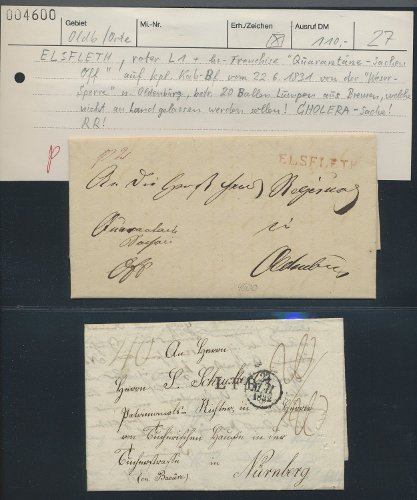 004600
Gebiet
Mi.-Nr.
Erh./Zeichen
Ausruf DM
Oldb/Orte
110,-
27
ELSFLETH, roter L1 + hs. Franchise "Quarantäne-Sachen
Off" auf kpl. Kab-Bf. vom 22.6.1831 von der "Weser-
Sperre" n. Oldenburg, betr. 20 Ballen Lumpen aus Bremen, welche
nicht an Land gelassen werden sollen! CHOLERA-Sache!
RR!
ELSFLETH
An die
Regierung
in
Oldenburg
4600
An Herrn
Herrn S.
Patrimonial-Richter, in Herrn
von Tucherischen Hause in der
Tucherstrasse in
(en Bavière)
Nürnberg
1832